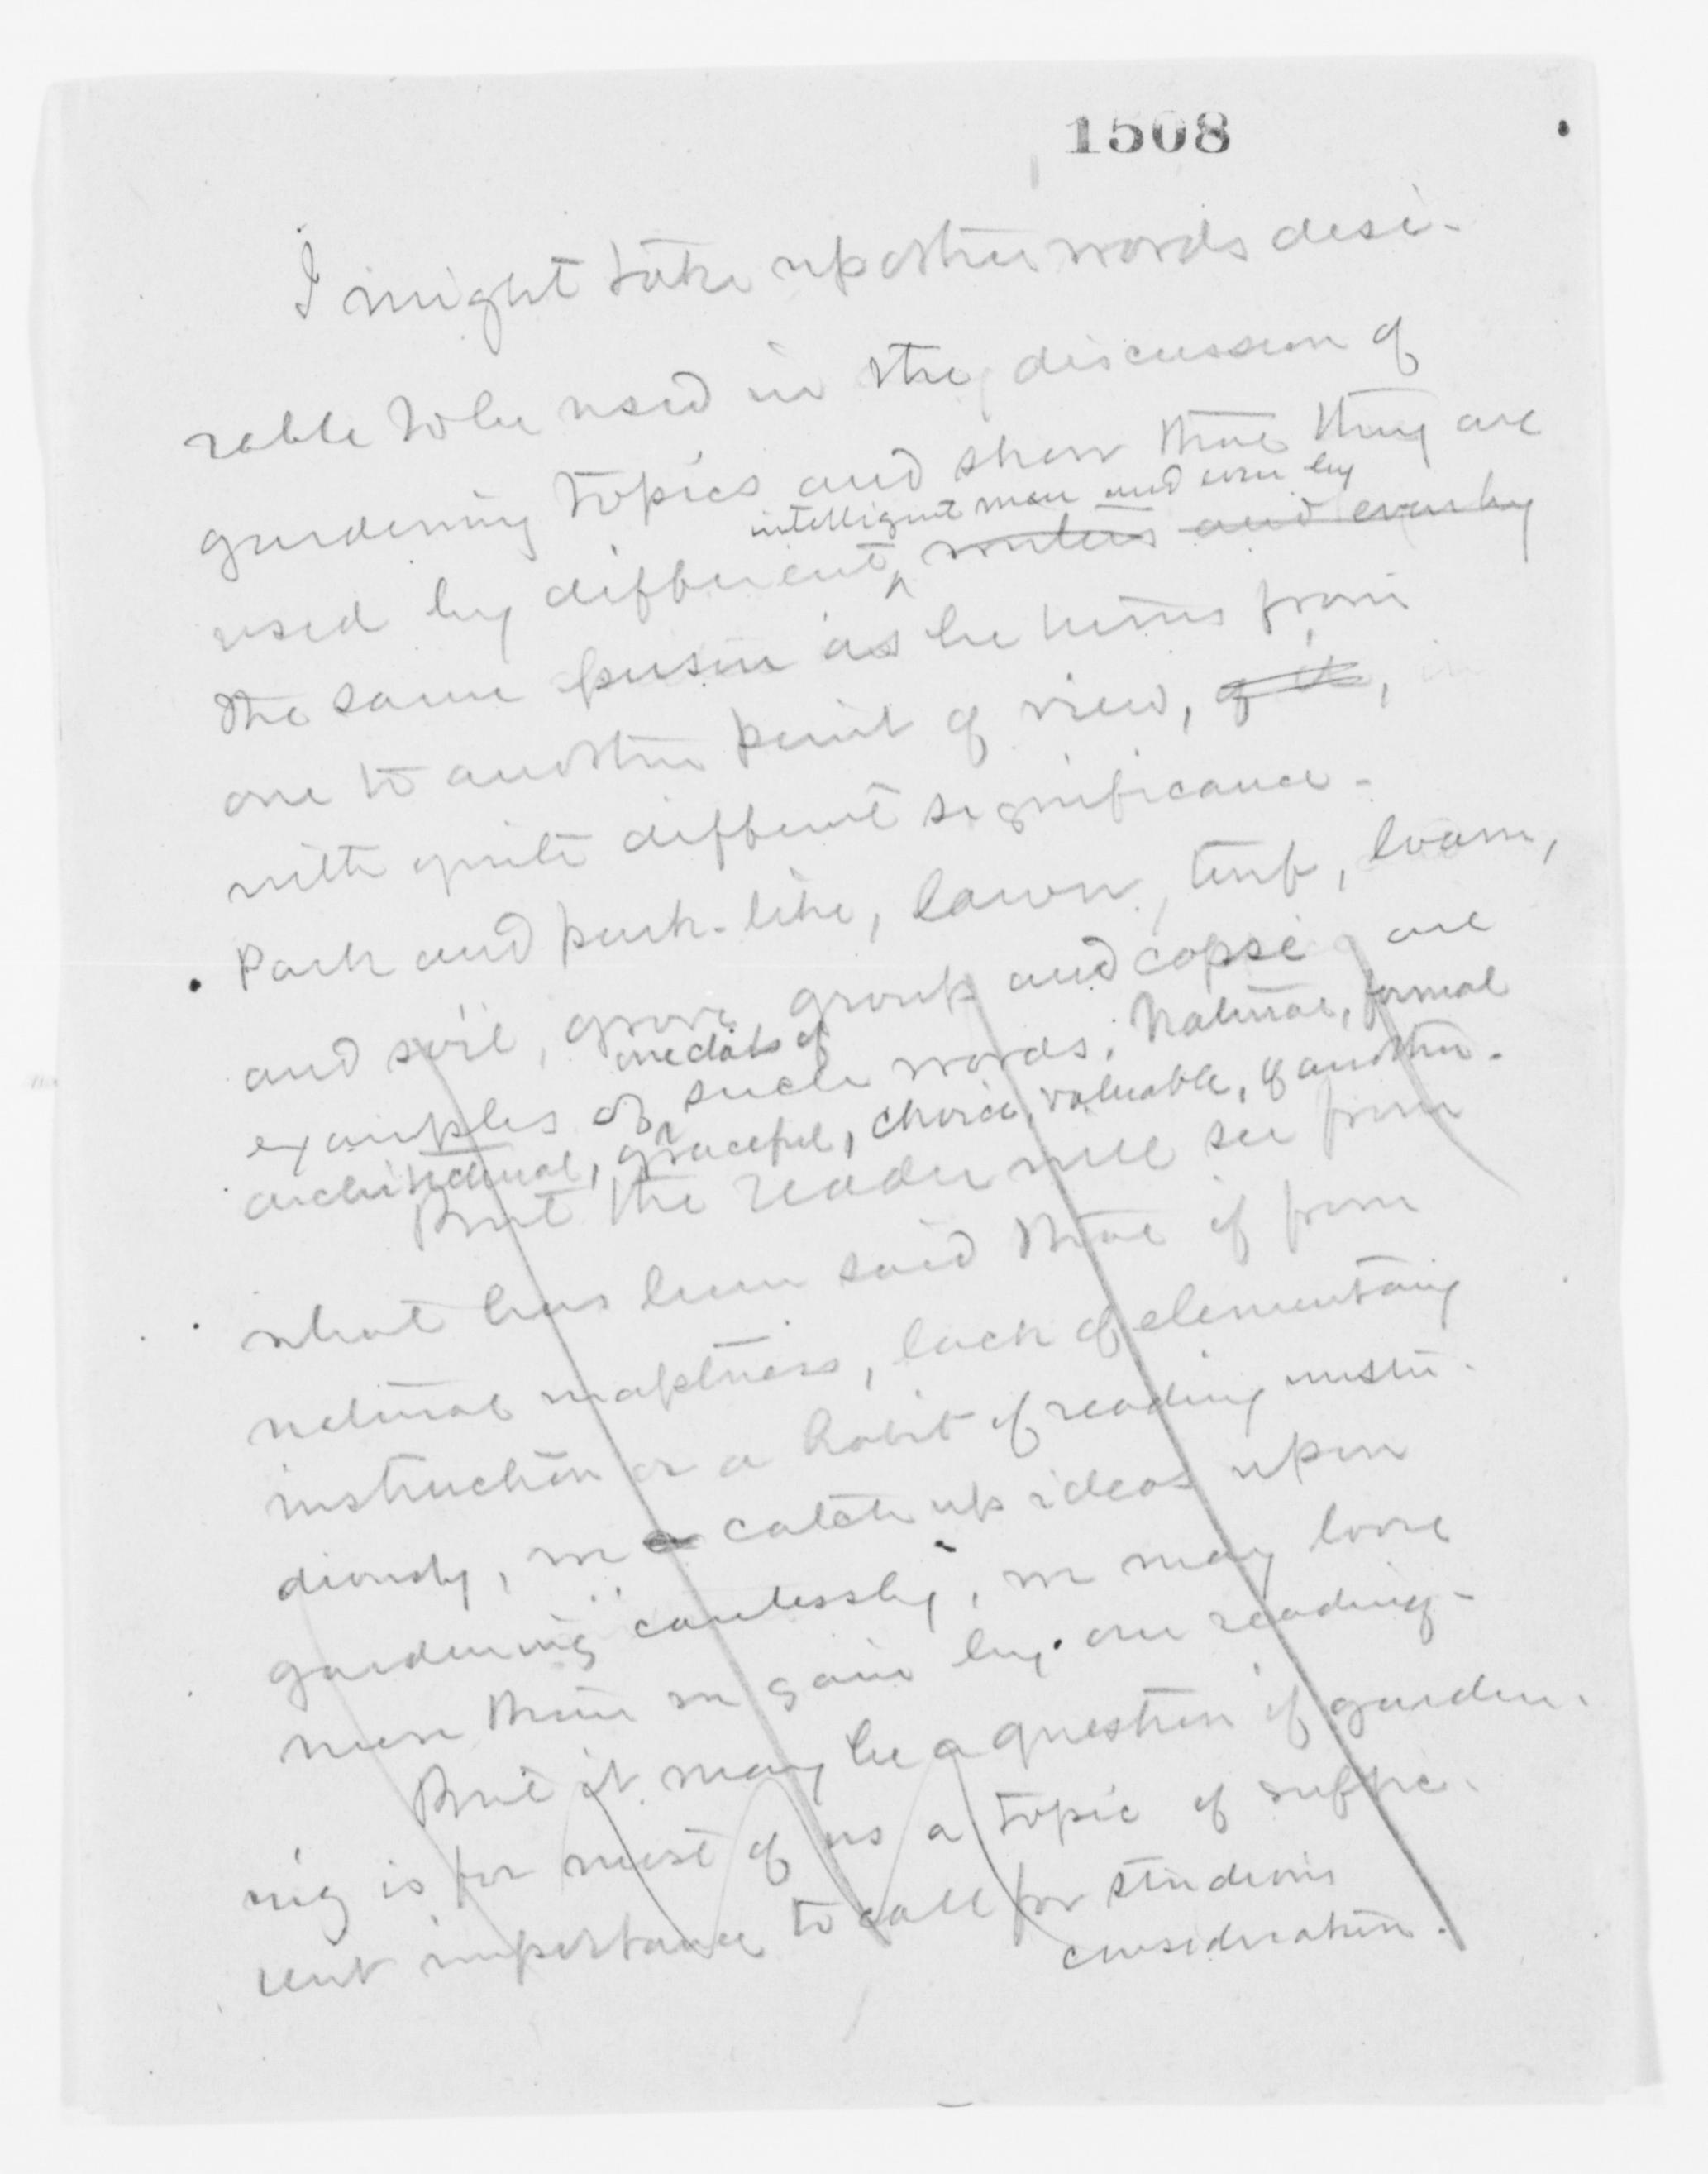 1508
I might take up other words desi-
rable to be used in the discussion of
gardening topics and show that they are
intelligent men and even by
used by different writers and even by
the same person as he turns from
one to another point of view, of it, in
with quite different significance.
Park and park-like, lawn, turf, loam,
and soil, grove, group and copse are
one class of
examples of such words, natural, formal
architectural, graceful, choice, valuable, of another.
But the reader will see from
what has been said that if from
natural inaptness, lack of elementary
instruction or a habit of reading unstu-
diously, we catch up ideas upon
gardening carelessly, we may loose
more than we gain by our reading-
But it may be a question if garden-
ing is for most of us a topic of suffic-
ient importance to call for studious
consideration.